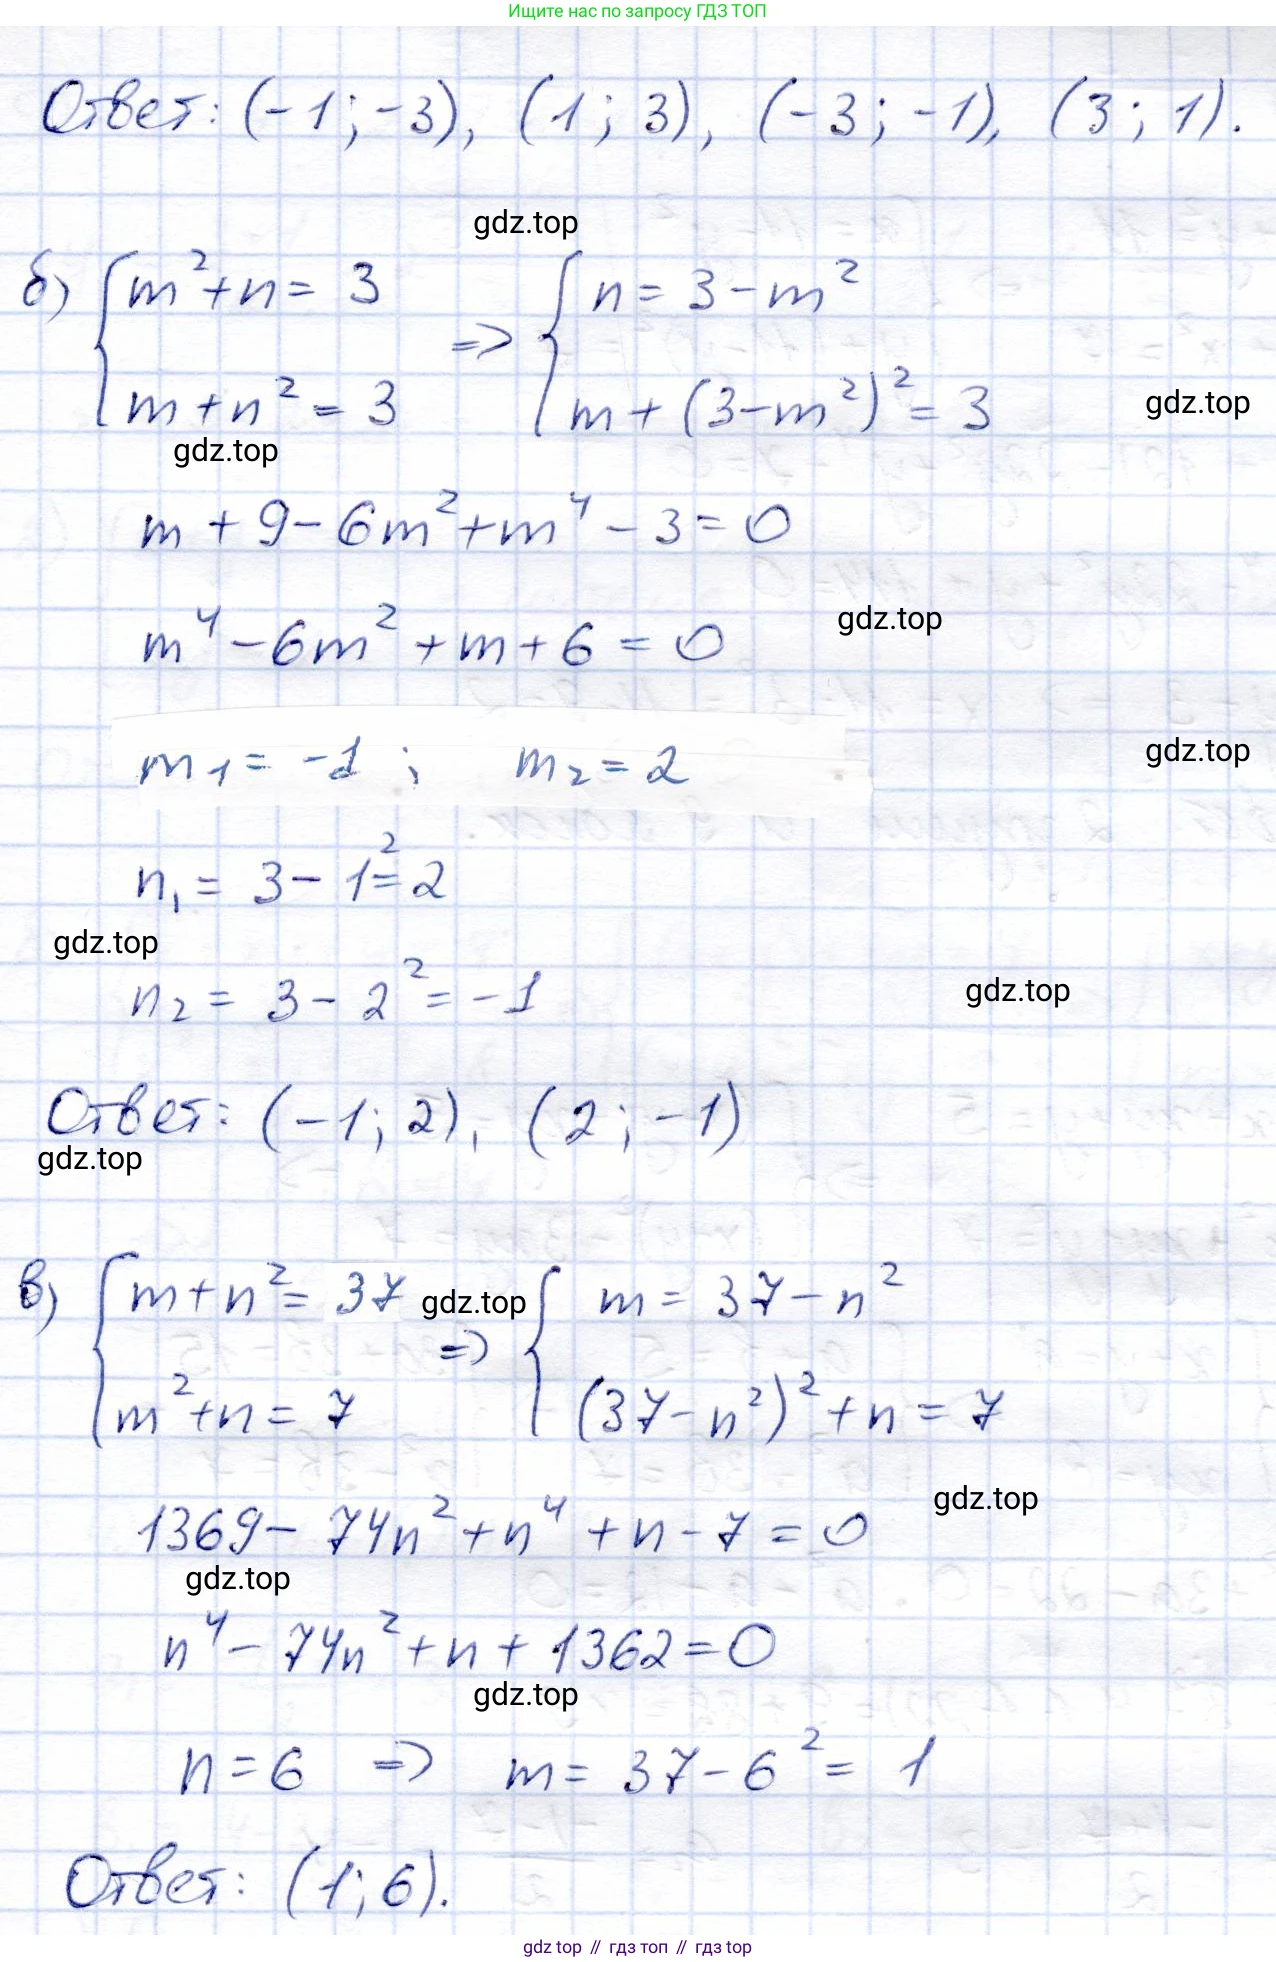 Ищите нас по запросу ГДЗ ТОП
Ответ: (-1; -3), (1; 3), (-3; -1), (3; 1).
gdz.top
б) { m² + n = 3 => { n = 3 - m²
m + n² = 3 m + (3 - m²)² = 3
gdz.top
gdz.top
m + 9 - 6m² + m⁴ - 3 = 0
gdz.top
m⁴ - 6m² + m + 6 = 0
m₁ = -1 ; m₂ = 2
gdz.top
n₁ = 3 - 1² = 2
gdz.top
n₂ = 3 - 2² = -1
gdz.top
Ответ: (-1; 2), (2; -1)
gdz.top
в) { m + n² = 37 => { m = 37 - n²
gdz.top
m² + n = 7 (37 - n²)² + n = 7
gdz.top
1369 - 74n² + n⁴ + n - 7 = 0
gdz.top
n⁴ - 74n² + n + 1362 = 0
gdz.top
n = 6 => m = 37 - 6² = 1
Ответ: (1; 6).
gdz top // гдз топ // gdz top